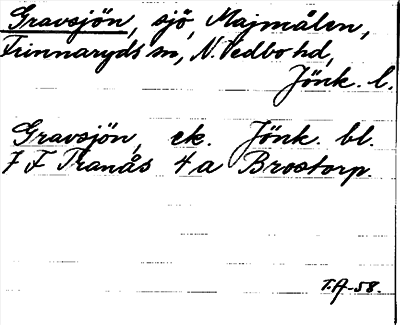 Gravsjön, sjö, Majmålen,
Frinnaryds sn, N. Vedbo hd,
Jönk. l.
Gravsjön, ek. Jönk. bl.
7 F Tranås 4 a Brostorp.
T.A-58.